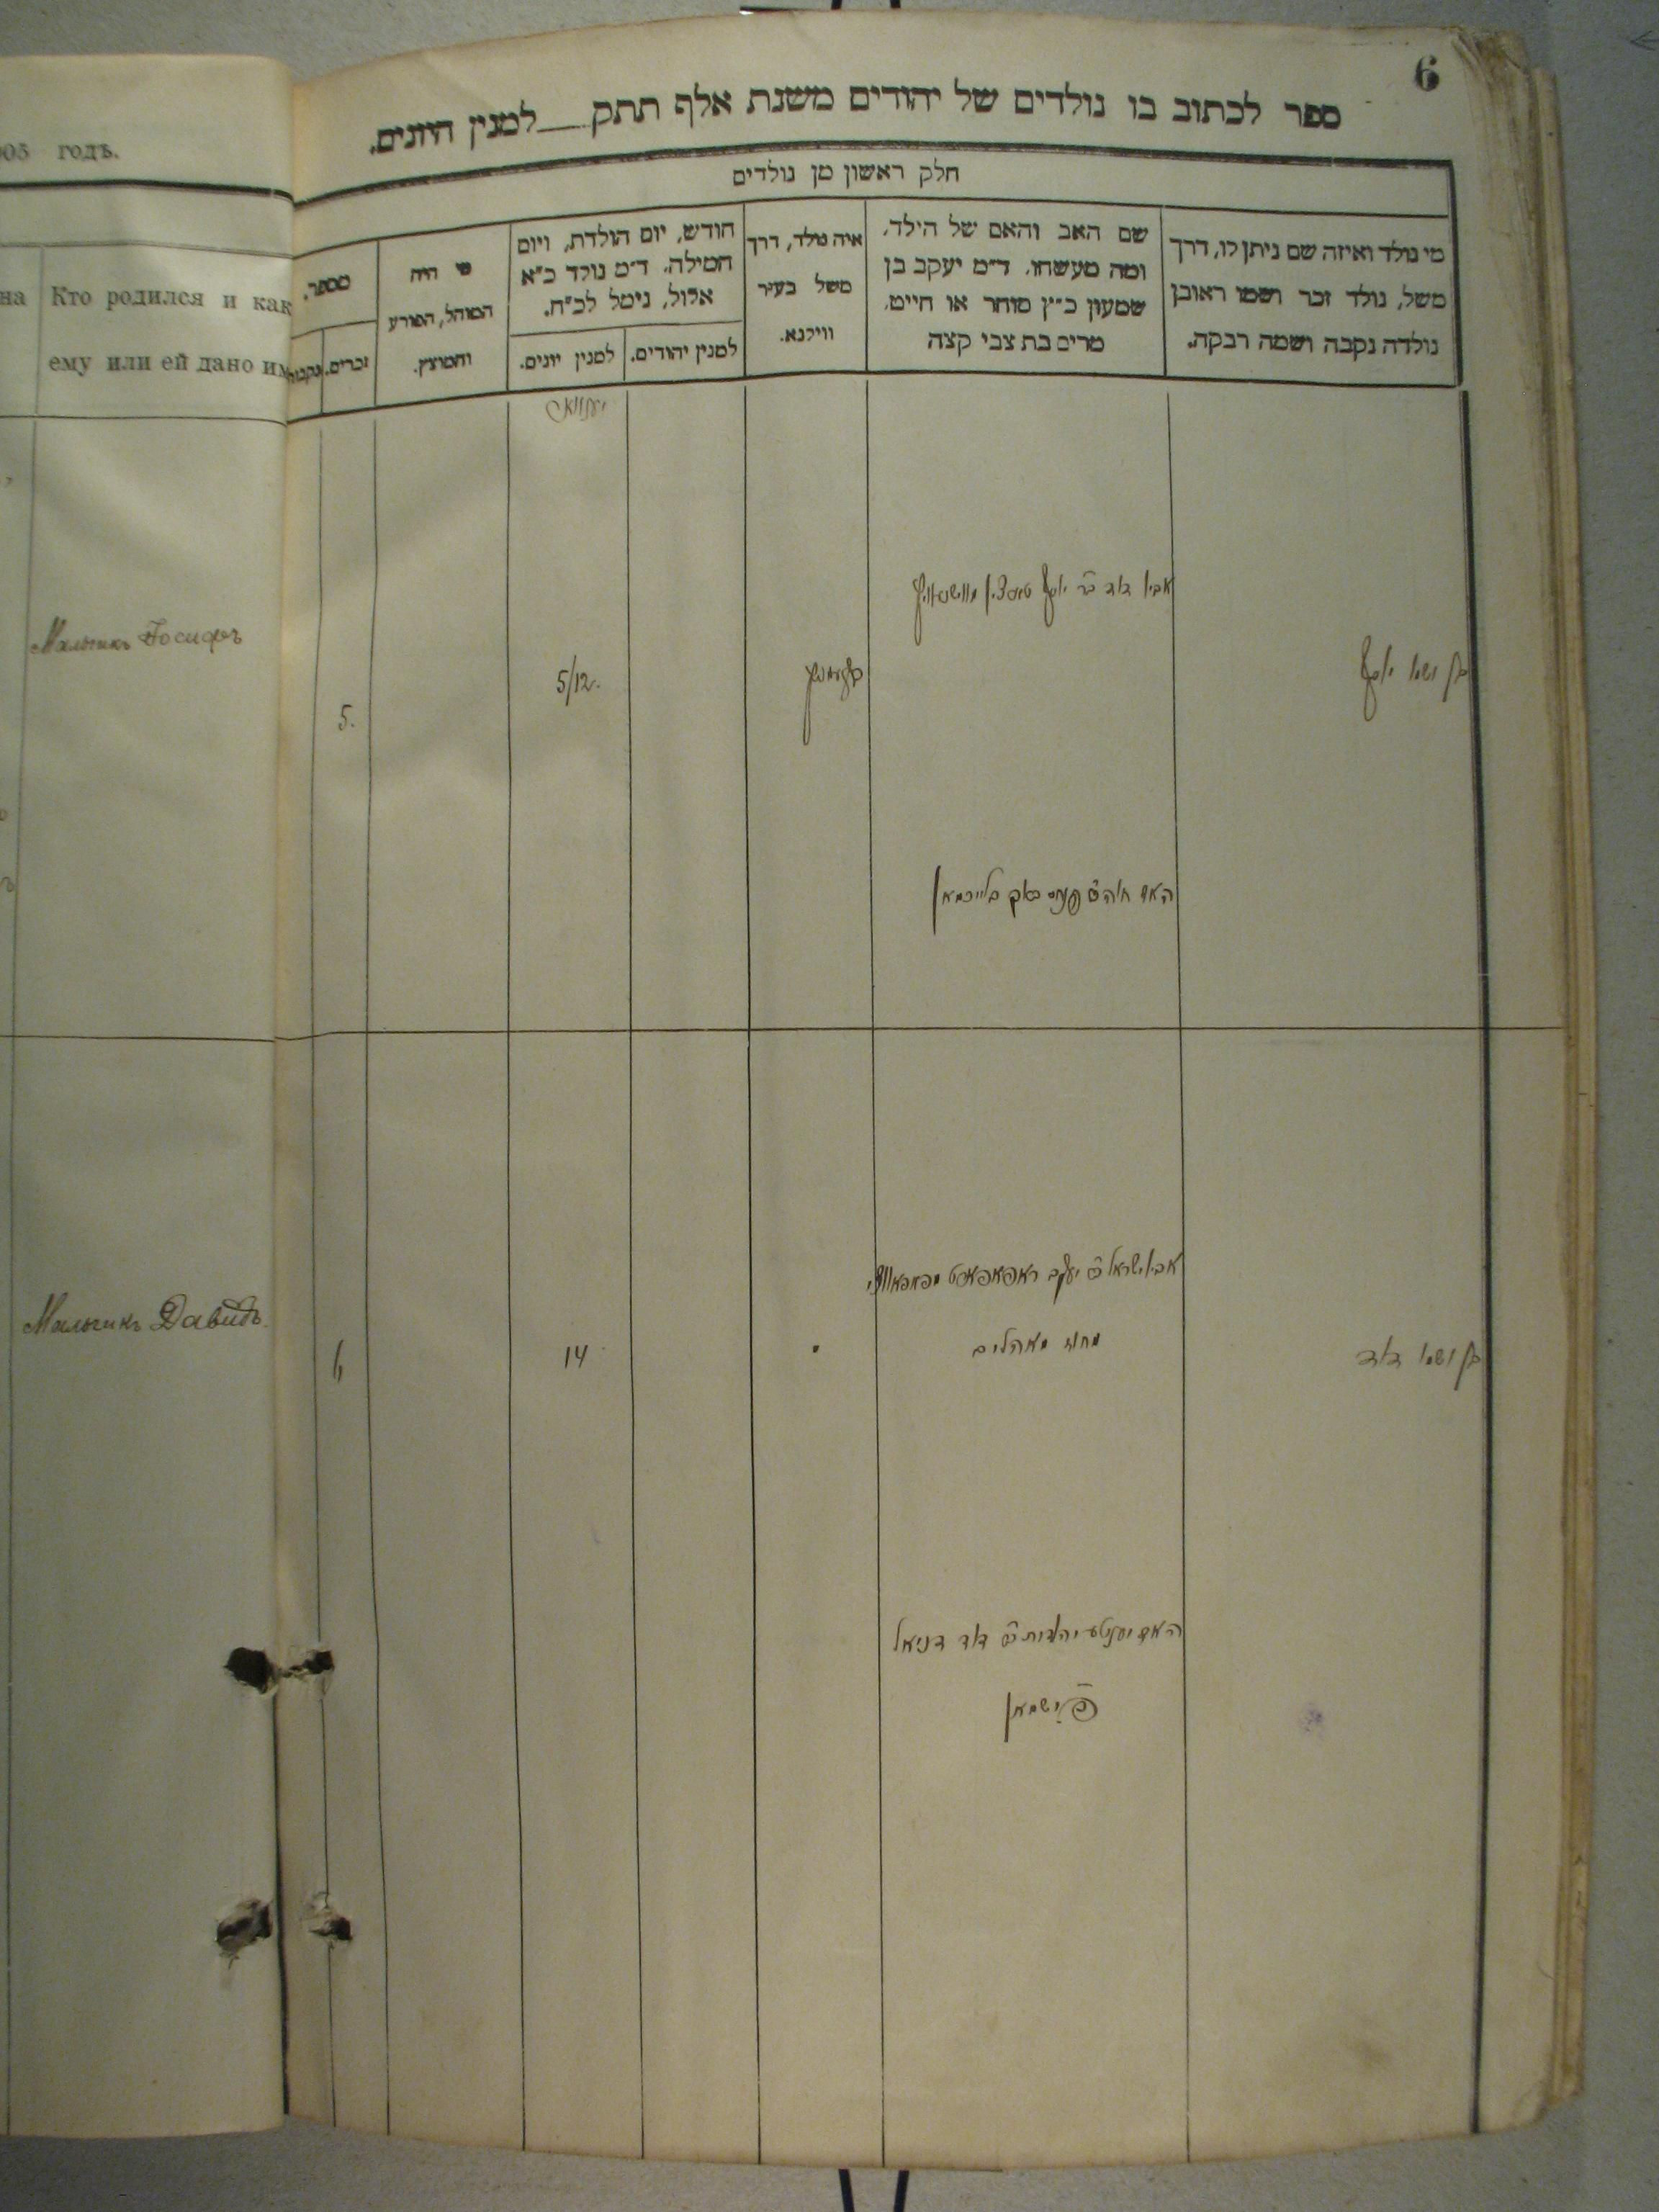 6
ספר לכתוב בו נולדים של יהודים משנת אלף תתק__למנין היונים.
חלק ראשון מן נולדים
מי נולד ואיזה שם ניתן לו, דרך
משל, נולד זכר ושמו ראובן
נולדה נקבה ושמה רבקה.
שם האב והאם של הילד,
ומה מעשהו. ד״מ יעקב בן
שמעון כ״ץ סוחר או חייט,
מרים בת צבי קצה
איה נולד, דרך
משל בעיר
ווילנא.
חודש, יום הולדת, ויום
המילה. ד״מ נולד כ״א
אלול, נימל לכ״ח.
למנין יהודים.
למנין יונים.
מי היה
המוהל, הפורע
והמוצץ.
מספר.
זכרים.
נקבות
יענואר
בן ושמו יוסף
אביו דוד ב״ר יוסף
5/12.
5.
האם חיה
בן ושמו דוד
אביו ישראל ב״ר יעקב ראפאפארט
14
6
האם יהודית ב״ר דוד דניאל
פישמאן
905 годъ.
на
Кто родился и как
ему или ей дано им
Мальчикъ Іосифъ
Мальчикъ Давидъ.